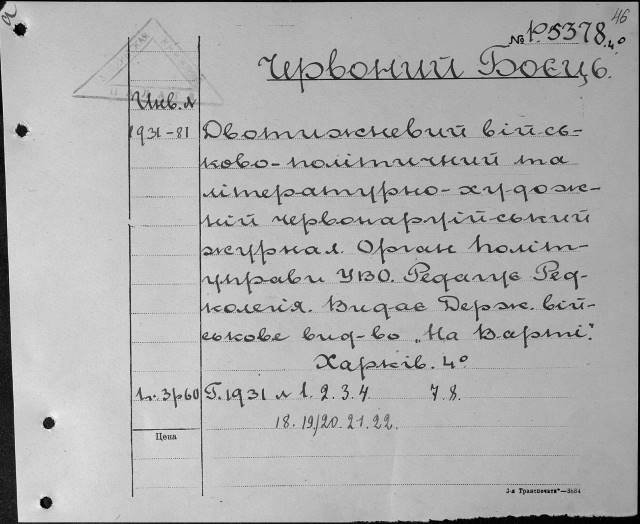 46
№ Р5378.4º
Червоний Боєць.
Инв. №
1931-81 Двотижневий війсь-
ково-політичний та
літературно-худож-
ній червоноармійський
журнал. Орган Політ-
управи УВО. Редагує Ред-
колегія. Видає Держ. вій-
ськове вид-во „На Варті".
Харків. 4º
1н. 3р60 Г. 1931 № 1. 2. 3. 4 7. 8.
18. 19/20. 21. 22.
Цена
3-я Транспечать—3584